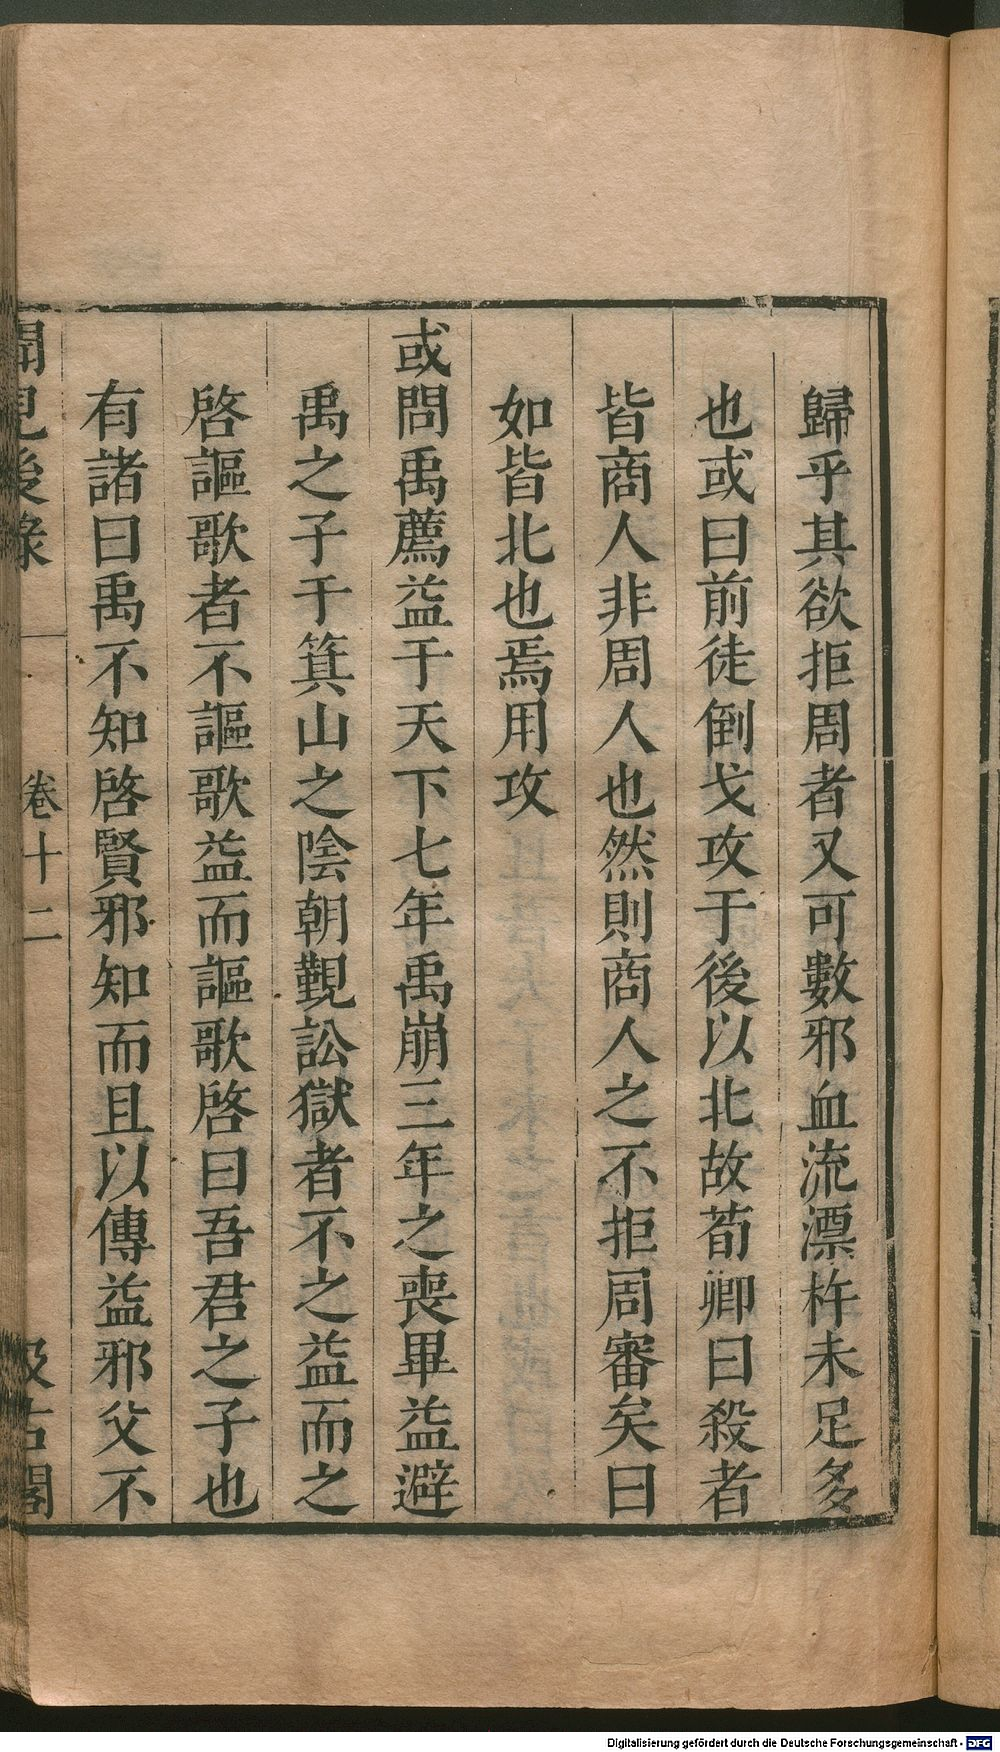 歸乎其欲拒周者又可數邪血流漂杵未足多
也或曰前徒倒戈攻于後以北故荀卿曰殺者
皆商人非周人也然則商人之不拒周審矣曰
如皆北也焉用攻
或問禹薦益于天下七年禹崩三年之喪畢益避
禹之子于箕山之陰朝覲訟獄者不之益而之
啓謳歌者不謳歌益而謳歌啓曰吾君之子也
有諸曰禹不知啓賢邪知而且以傳益邪父不
聞見後錄 卷十二 汲古閣
Digitalisierung gefördert durch die Deutsche Forschungsgemeinschaft - DFG